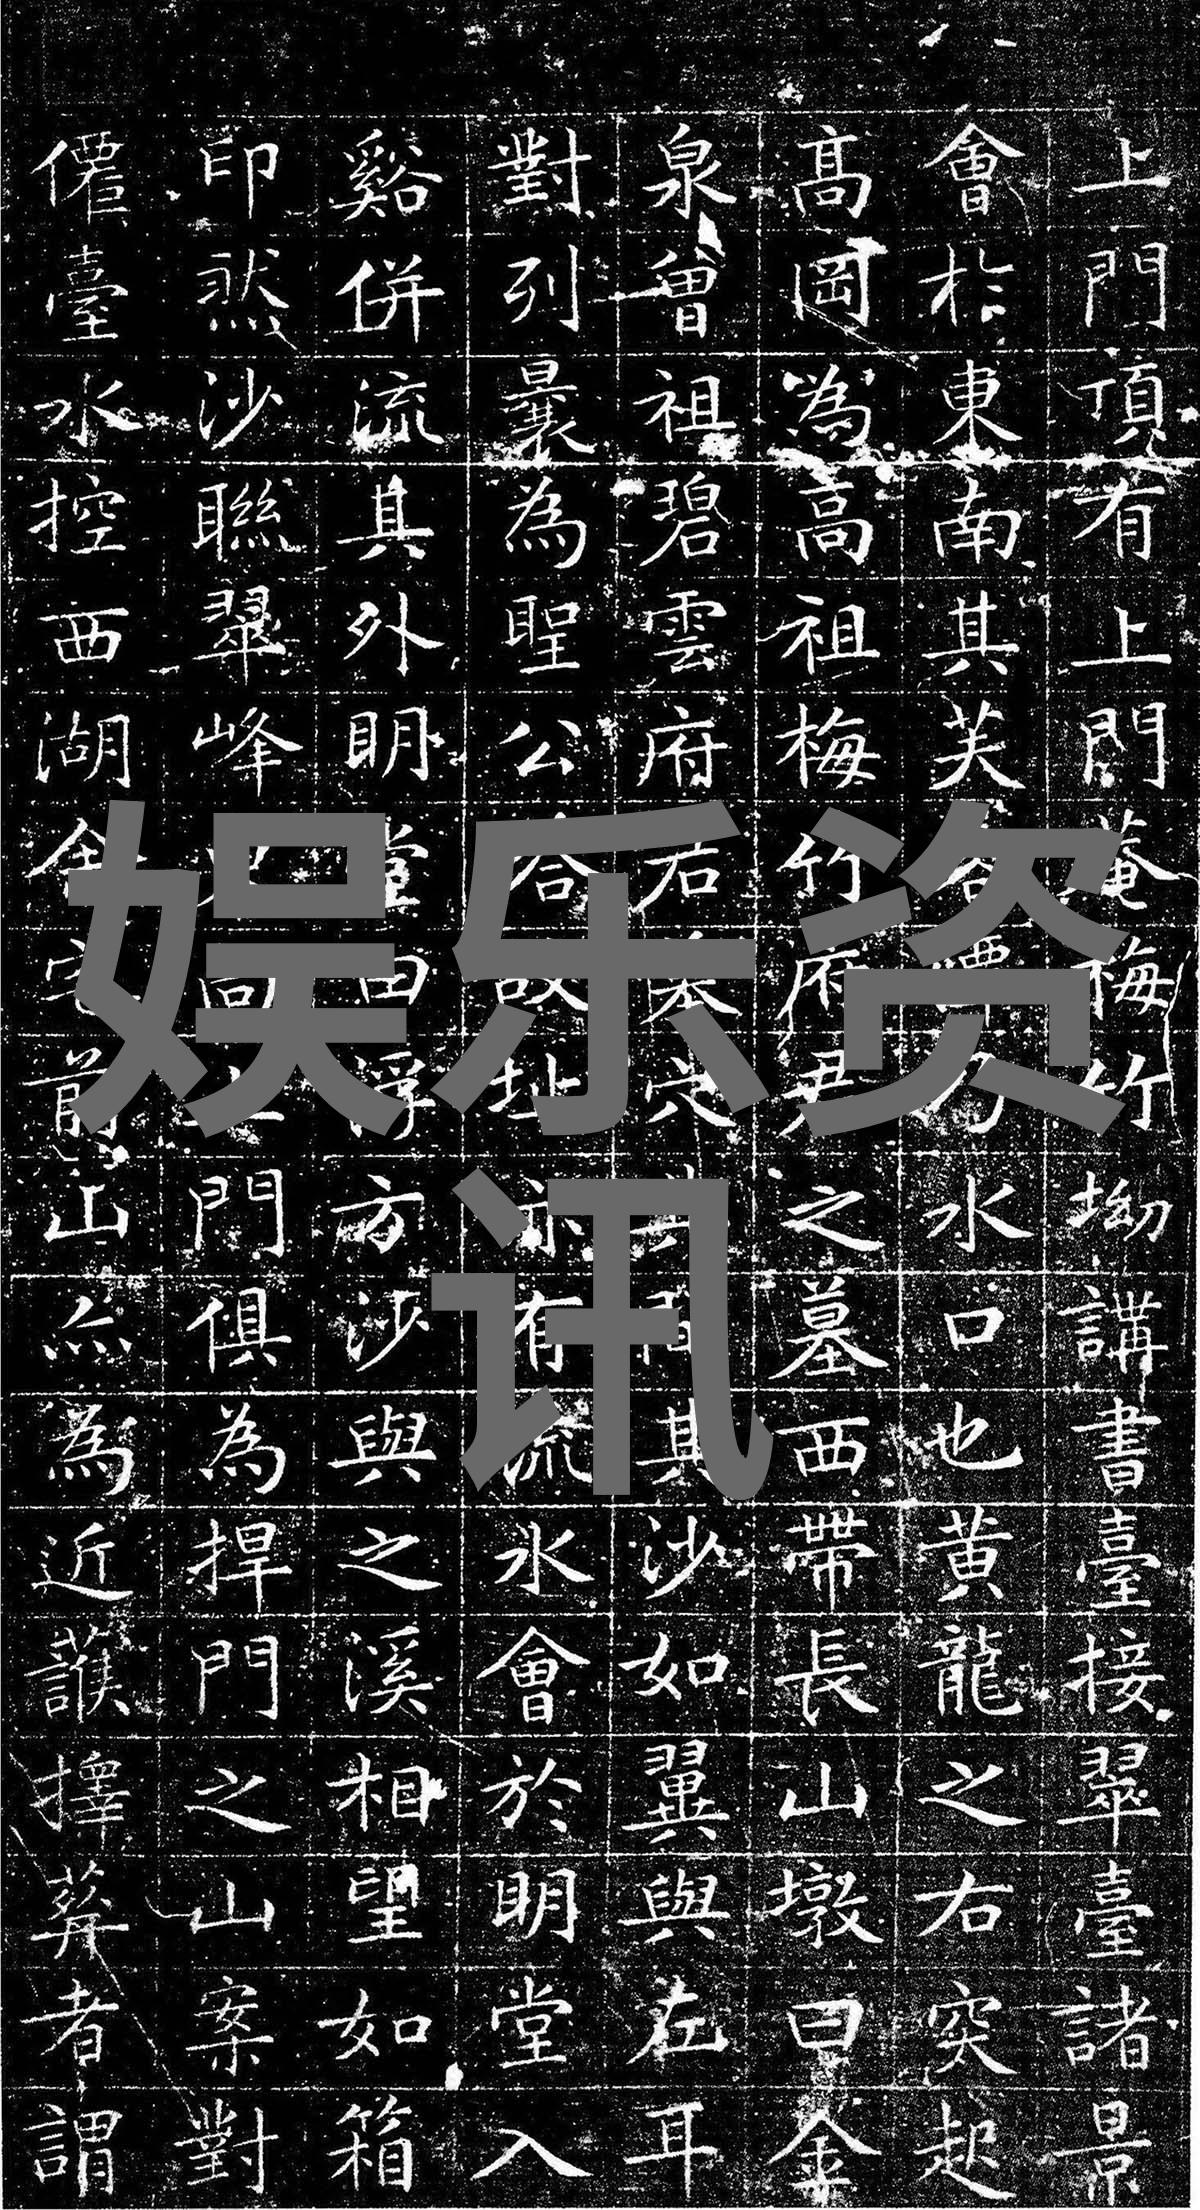 上門頂有上門菴梅竹坳講書臺接翠臺諸景
會於東南其芙水口也黃龍之右突起
高岡為高祖梅竹府之墓西帶長山墩曰金
泉曾祖碧雲府君其沙如翼與左耳
對列曩為聖公合故址亦有流水會於明堂入
谿併流其外明堂田浮方沙與之溪相望如箱
印然沙聯翠峰門俱為捍門之山案對
僊臺水控西湖前山亦為近護擇葬者謂
娱乐资
讯